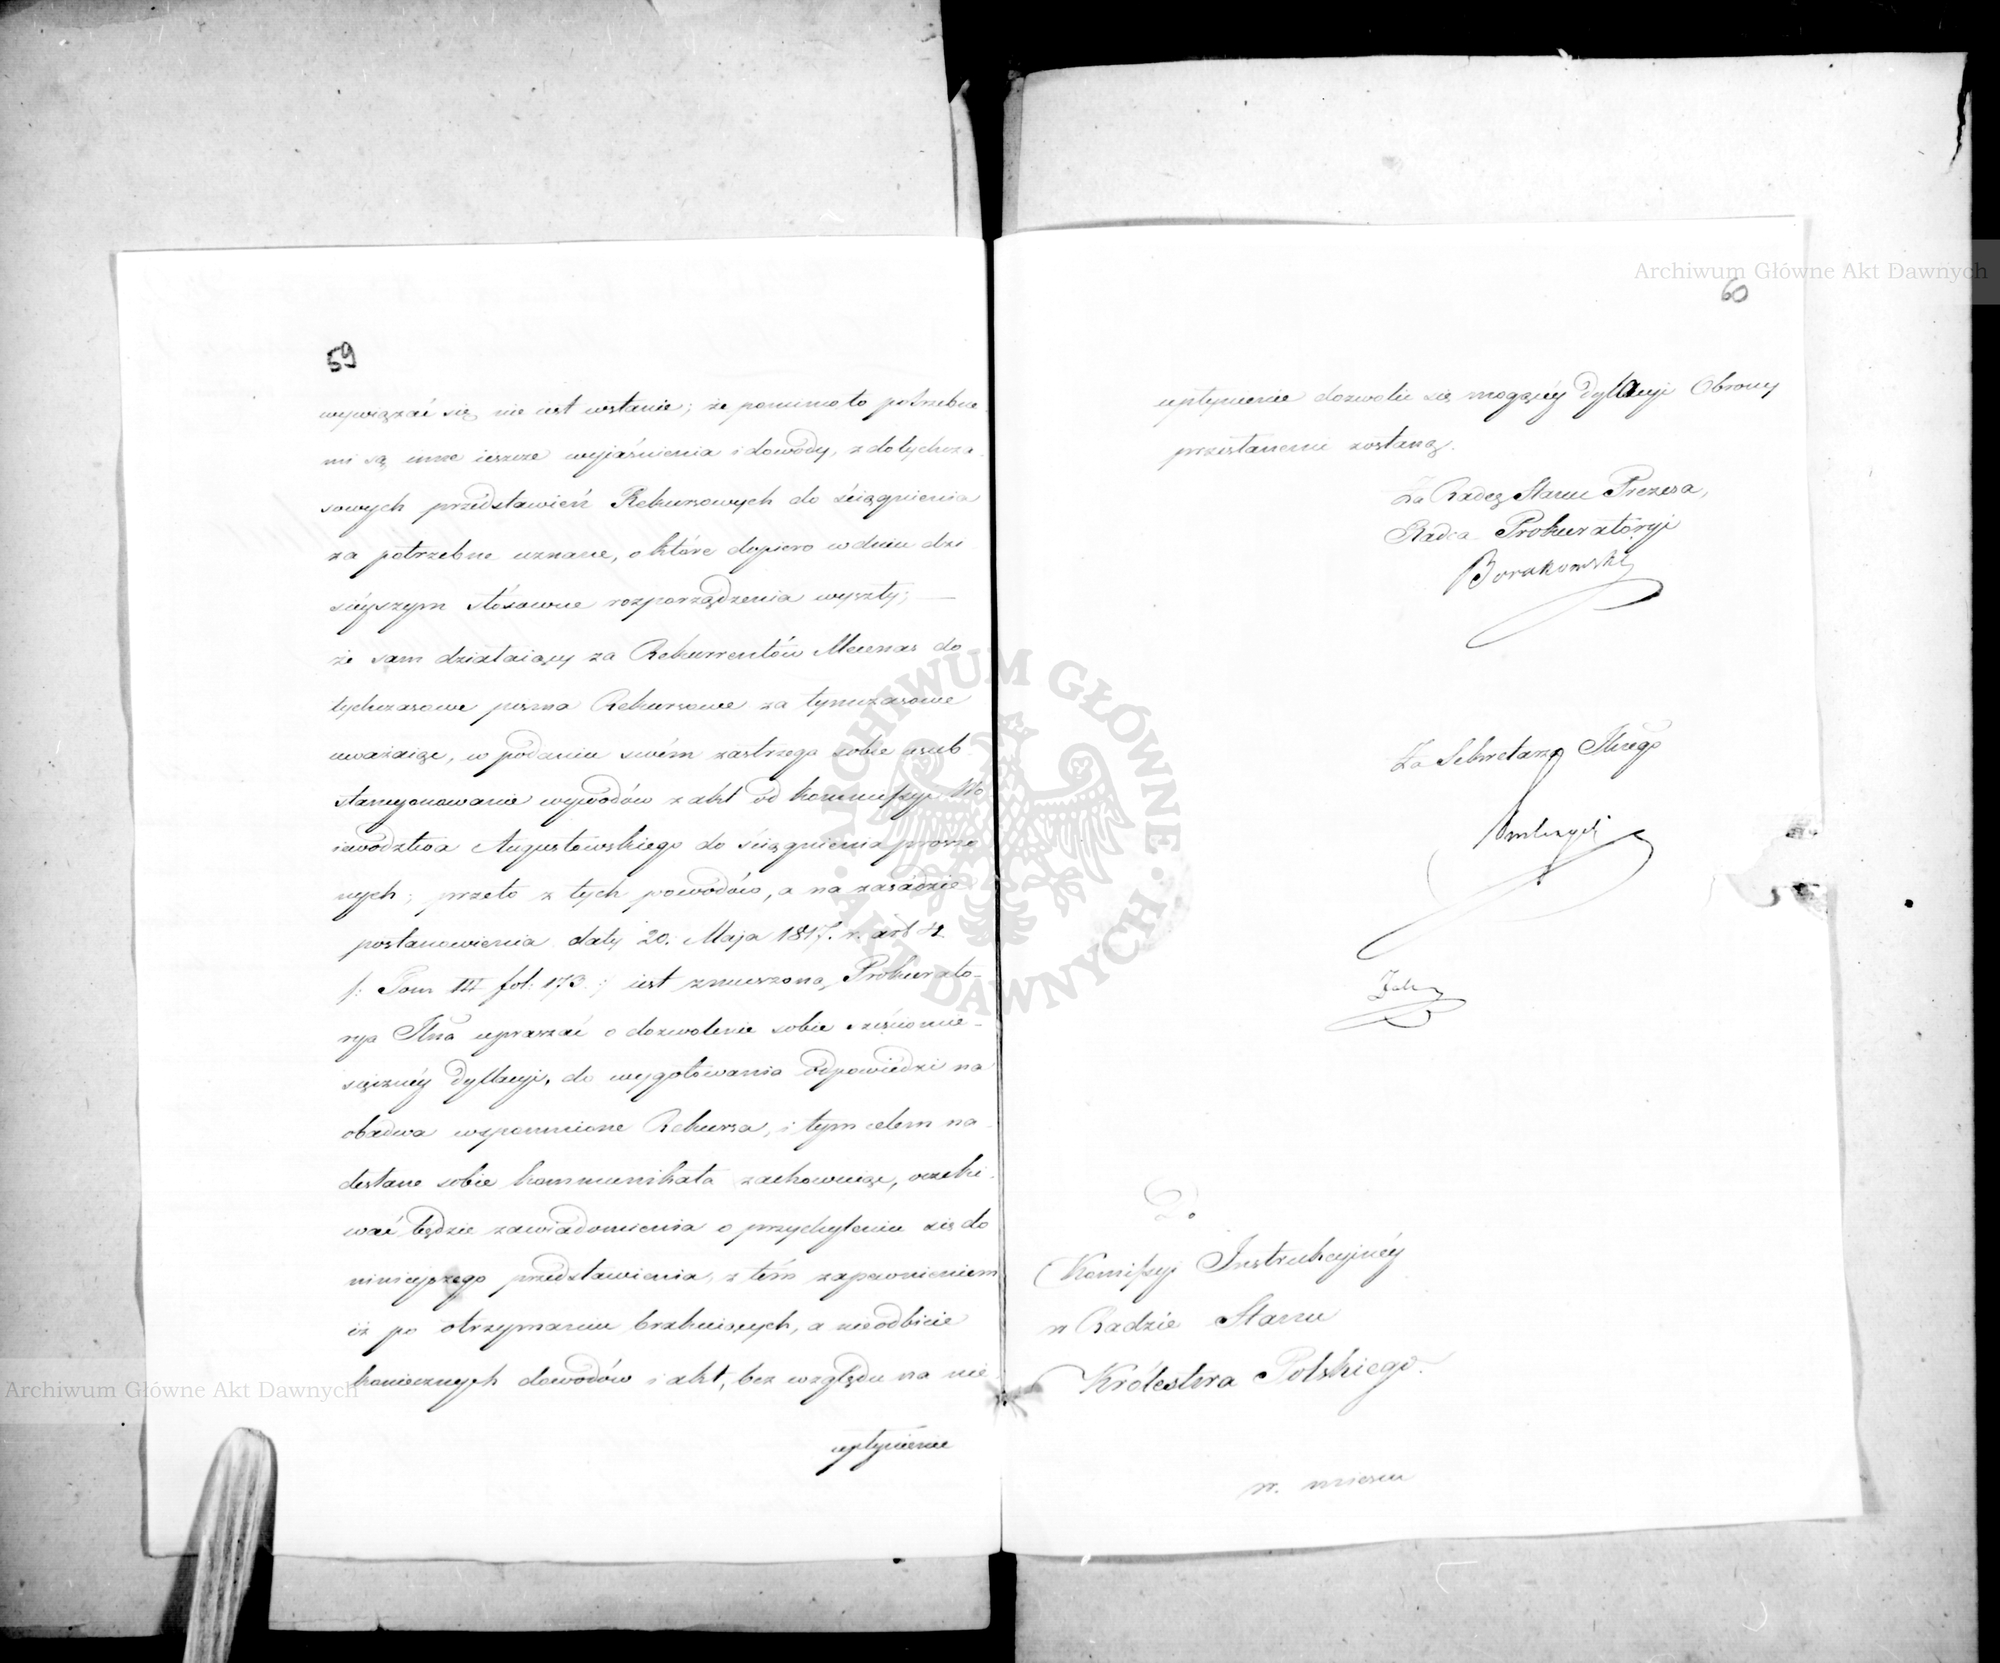 59
wywiązać się nie iest wstanie; że pomimo to potrzebne
mi są inne ieszcze wyjaśnienia i dowody, z dotychcza-
sowych przedstawień Rekursowych do ściągnienia
za potrzebne uznane, o które dopiero w dniu dzi
sieyszym stósowne rozporządzenia wyszły; —
że sam działaiący za Rekurrentów Mecenas do
tychczasowe pisma Rekursowe za tymczasowe
uważaiąc, w podaniu swém zastrzega sobie usub-
stancyonowanie wywodów z akt od Kommissyi Wo
iewództwa Augustowskiego do ściągnienia proszo
nych; przeto z tych powodów, a na zasadzie
postanowienia daty 20. Maja 1817. r. art 4
/: Tom III fol: 173. :/ iest zmuszoną Prokurato-
rya Jlna upraszać o dozwolenie sobie sześciomie-
sięcznéy dyllacyi, do wygotowania odpowiedzi na
obadwa wspomnione Rekursa, i tym celem na-
desłane sobie kommunikata zachowuiąc, oczeki-
wać będzie zawiadomienia o przychyleniu się do
ninieyszego przedstawienia, z tém zapewnieniem
iż po otrzymaniu brakuiących, a nieodbicie
koniecznych dowodów i akt, bez względu na nie
upłynienie
60
upłynienie dozwolić się mogącéy dyllacyi Obrony
przesłanemi zostaną.
Za Radcę Stanu Prezesa,
Radca Prokuratoryi
Borakowski
Za Sekretarza Jlnego
Do
Komissyi Instrukcyjnéy
w Radzie Stanu
Królestwa Polskiego.
w miescu
Archiwum Główne Akt Dawnych
Archiwum Główne Akt Dawnych
ARCHIWUM GŁÓWNE AKT DAWNYCH